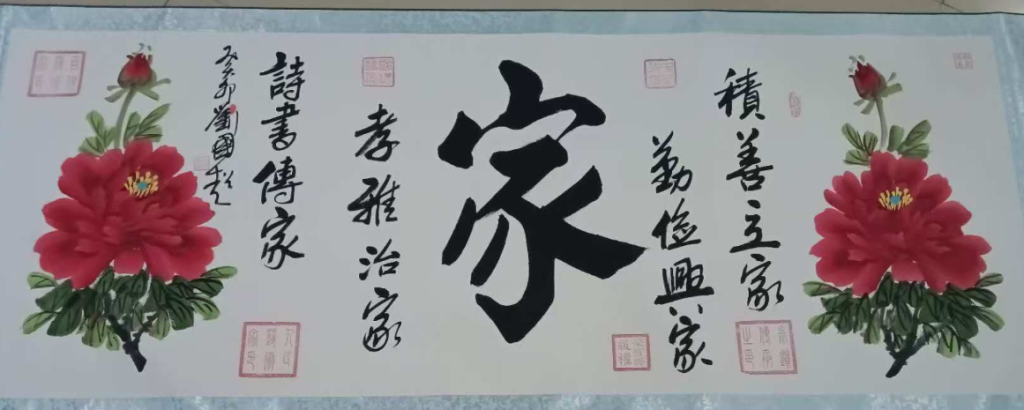 積善立家
勤儉興家
家
孝雅治家
詩書傳家
癸卯 劉國超